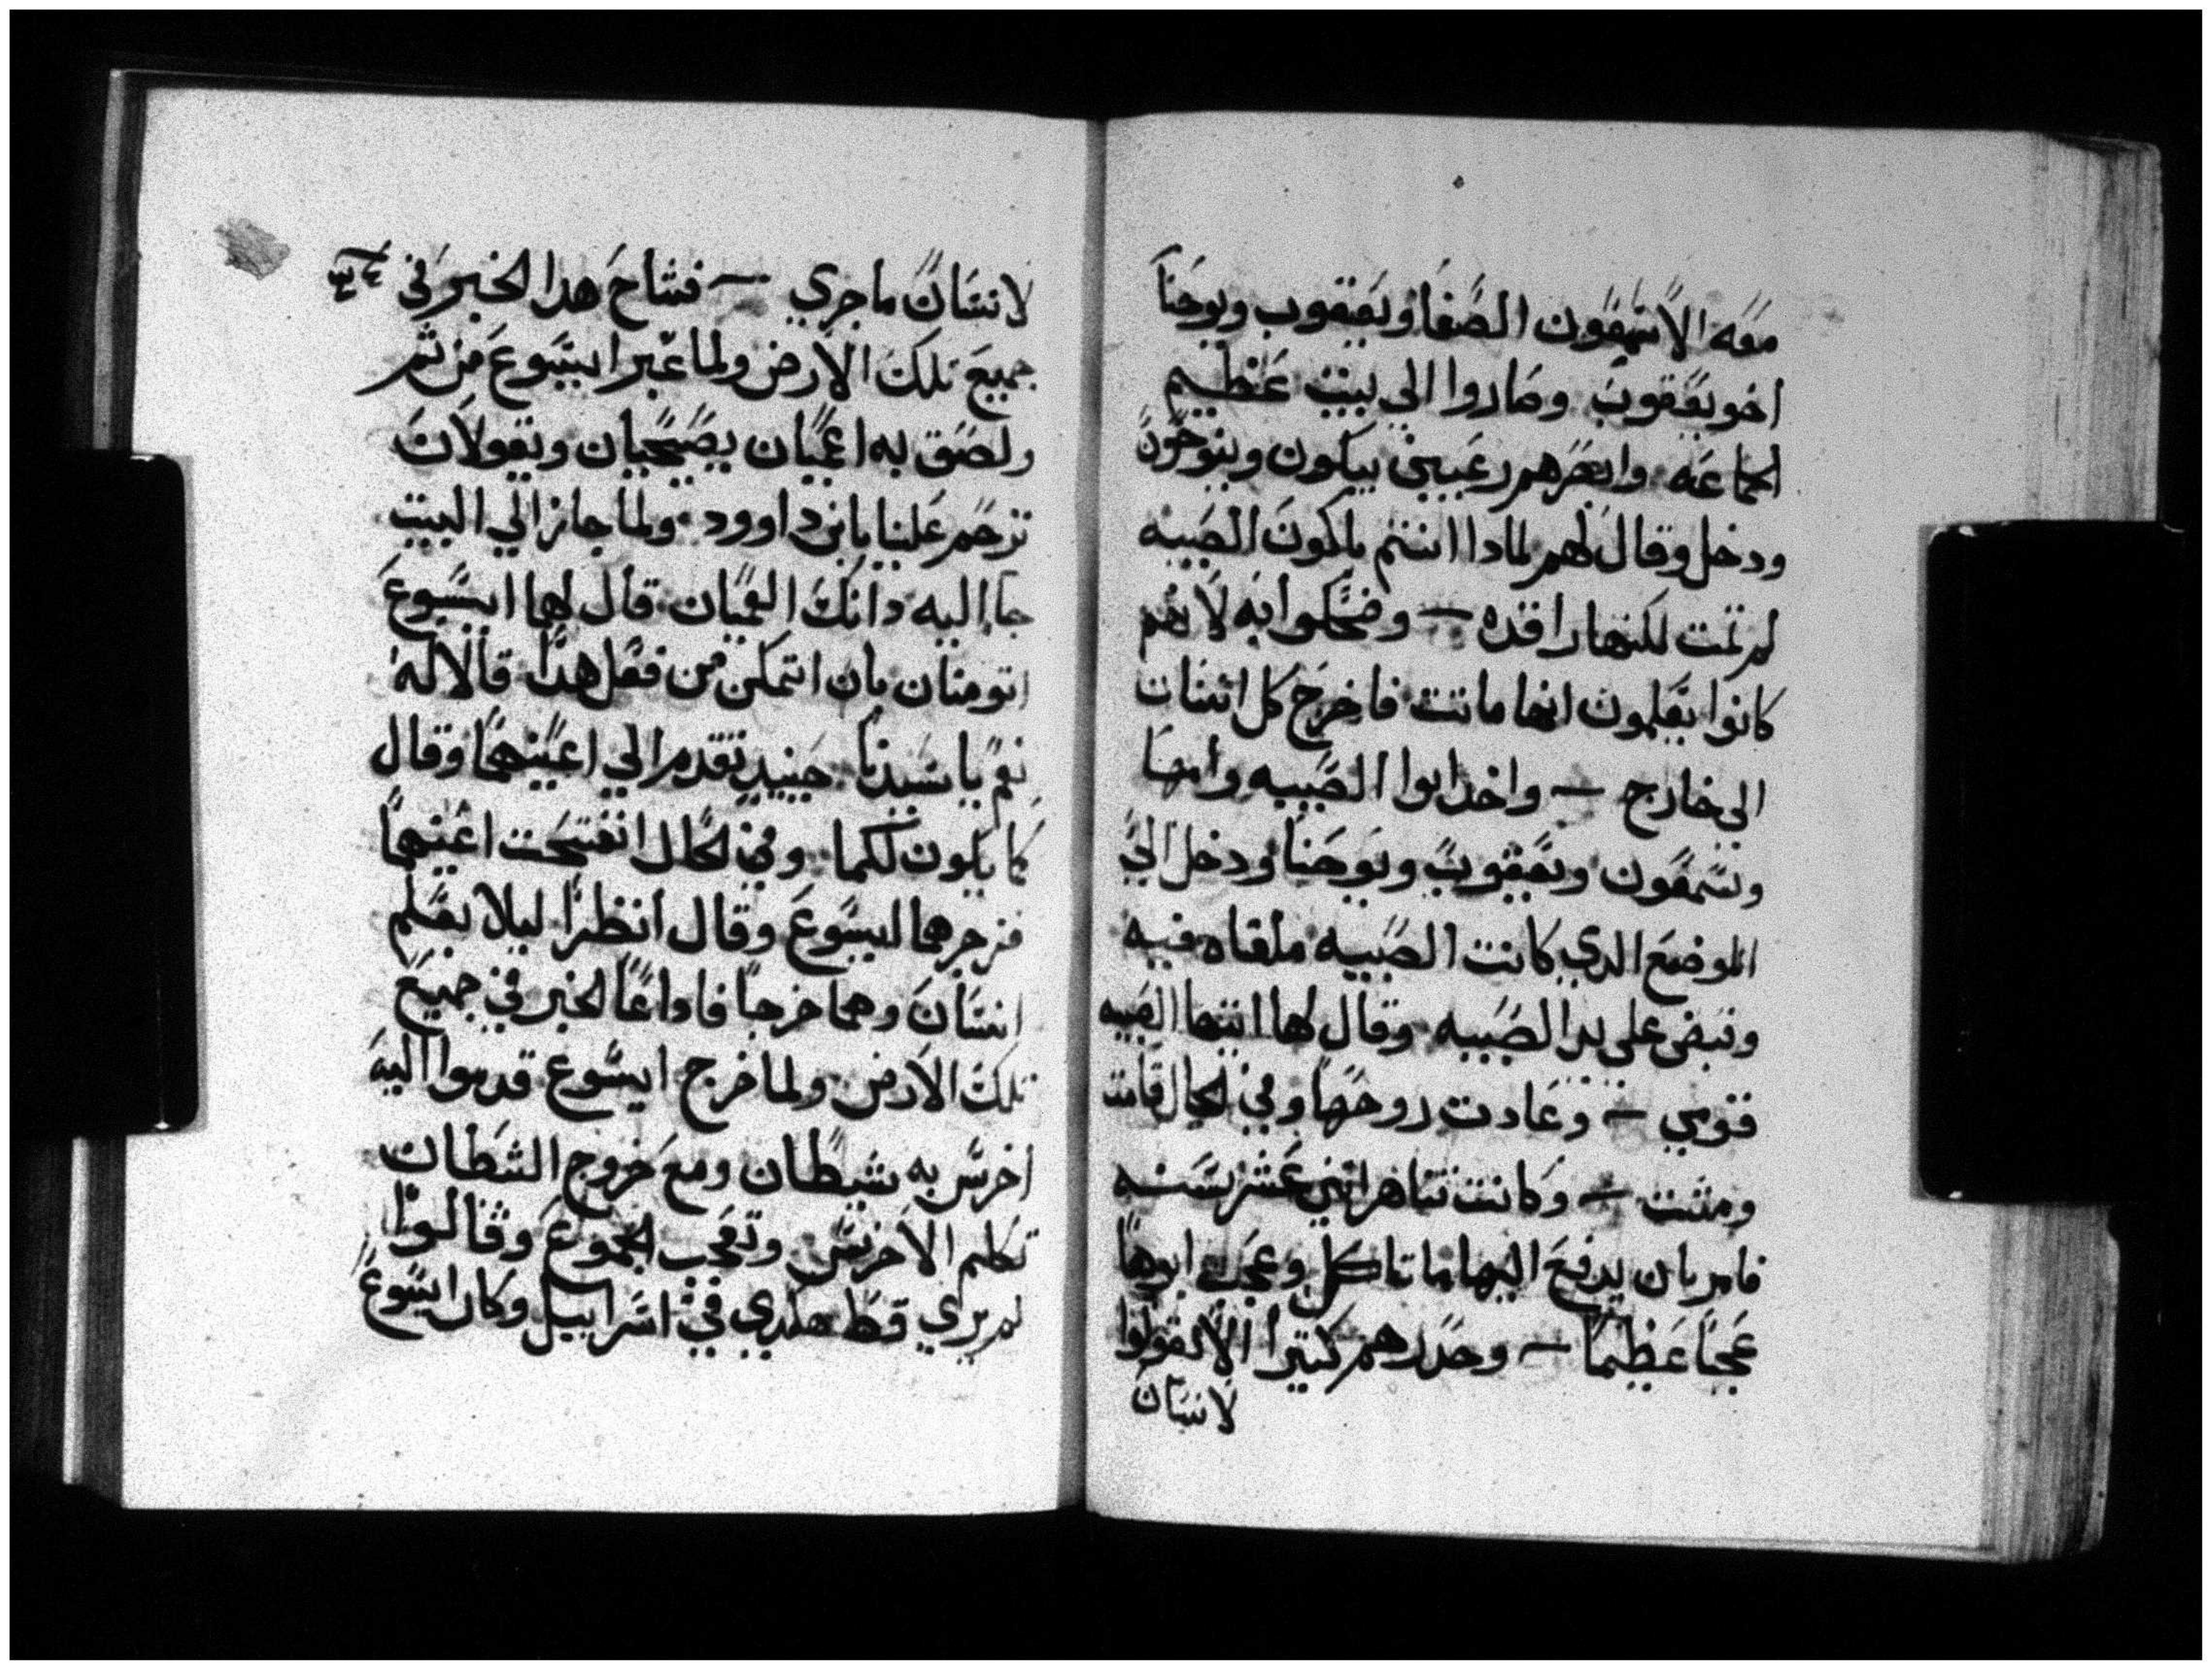 معه الا شمعون الصفا ويعقوب ويوحنا
اخو يعقوب وصاروا الي بيت عظيم
الجماعه وابصرهم رعبين يبكون وينوحون
ودخل وقال لهم لمادا انتم باكون الصبيه
لم تمت لكنها راقده — وضحكوا به لانهم
كانوا يعلمون انها ماتت فاخرج كل انسان
الي خارج — واخد ابوا الصبيه وامها
وشمعون ويعقوب ويوحنا ودخل الي
الموضع الدي كانت الصبيه ملقاه فيه
وقبض علي يد الصبيه وقال لها ايتها الصبيه
قومي — وعادت روحها وفي الحال قامت
ومشت — وكانت تناهز اثني عشر سنه
فامر بان يدفع اليها ما تاكل وعجب ابوها
عجبا عظيما — وحدرهم كتيرا الا تقولوا
لانسان
لانسان ما جري — فشاح هدا الخبر في
جميع تلك الارض ولما عبر ايسوع من ثم
ولصق به اعميان يصيحان ويقولان
ترحم علينا يابن داوود ولما جاز الي البيت
جا اليه دانك العميان قال لهما ايسوع
اتومنان بان اتمكن من فعل هدا قالا له
نعم يا سيدنا حينيد تقدم الي اعينهما وقال
كما يكون لكما وفي الحال انفتحت اعينهما
فزجرهما ايسوع وقال انظرا ليلا يعلم
انسان وهما خرجا فاداعا الخبر في جميع
تلك الارض ولما خرج ايسوع قدموا اليه
اخرس به شيطان ومع خروج الشطان
تكلم الاخرس وتعجب الجموع وقالوا
لم يري قط هكدي في اسراييل وكان ايسوع